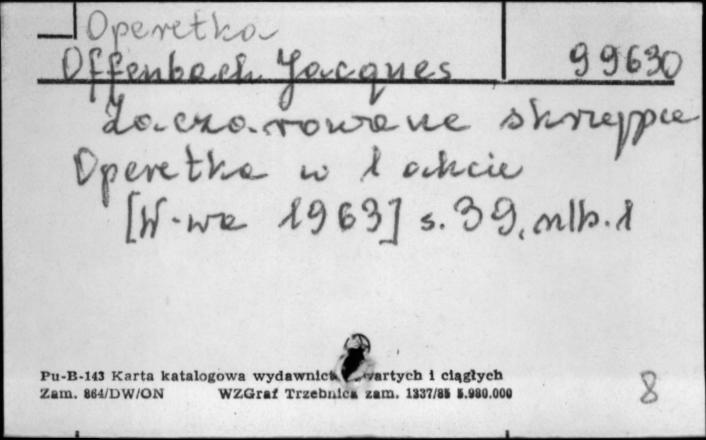 Operetka
Offenbach Jacques 99630
Zaczarowane skrzypce
Operetka w 1 akcie
[W-wa 1963] s. 39, nlb. 1
Pu-B-143 Karta katalogowa wydawnict artych i ciągłych
Zam. 864/DW/ON WZGraf Trzebnica zam. 1337/85 5.980.000
8